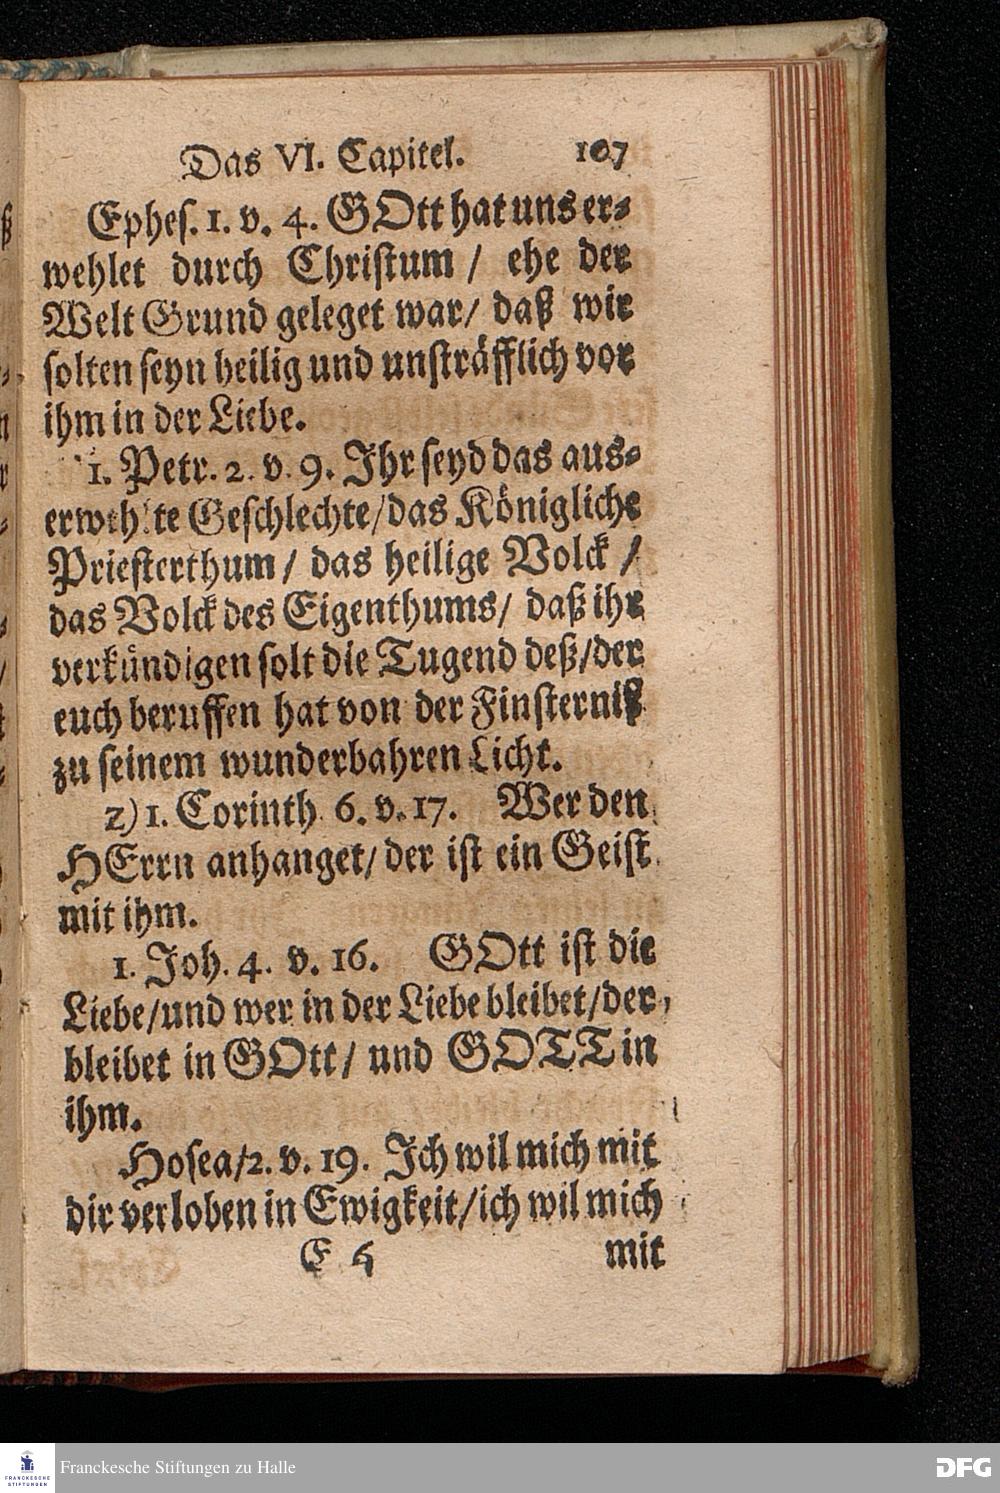 Das VI. Capitel. 107
Ephes. 1. v. 4. GOtt hat uns er⸗
wehlet durch Christum / ehe der
Welt Grund geleget war / daß wir
solten seyn heilig und unsträfflich vor
ihm in der Liebe.
1. Petr. 2. v. 9. Ihr seyd das aus⸗
erwehlte Geschlechte / das Königliche
Priesterthum / das heilige Volck /
das Volck des Eigenthums / daß ihr
verkündigen solt die Tugend deß / der
euch beruffen hat von der Finsterniß
zu seinem wunderbahren Licht.
2) 1. Corinth 6. v. 17. Wer den
HErrn anhanget / der ist ein Geist
mit ihm.
1. Joh. 4. v. 16. GOtt ist die
Liebe / und wer in der Liebe bleibet / der
bleibet in GOtt / und GOTT in
ihm.
Hosea / 2. v. 19. Ich wil mich mit
dir verloben in Ewigkeit / ich wil mich
E 5 mit
FRANCKESCHE
STIFTUNGEN
Franckesche Stiftungen zu Halle
DFG